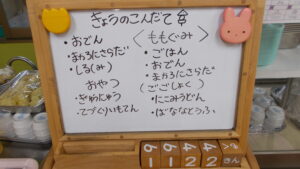 きょうのこんだて
・おでん
・まかろにさらだ
・しる(み)
おやつ
・ぎゅうにゅう
・てづくりいもてん
〈ももぐみ〉
・ごはん
・おでん
・まかろにさらだ
(ごごしょく)
・にこみうどん
・ばななとうふ